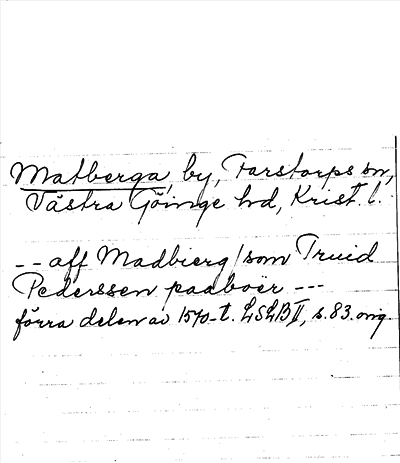 Matberga, by, Farstorps sn,
Västra Göinge hd, Krist. l.
-- aff Madbierg/som Truid
Pederssen paaboer ---
förra delen av 1570-t. LSLB II, s. 83. orig.